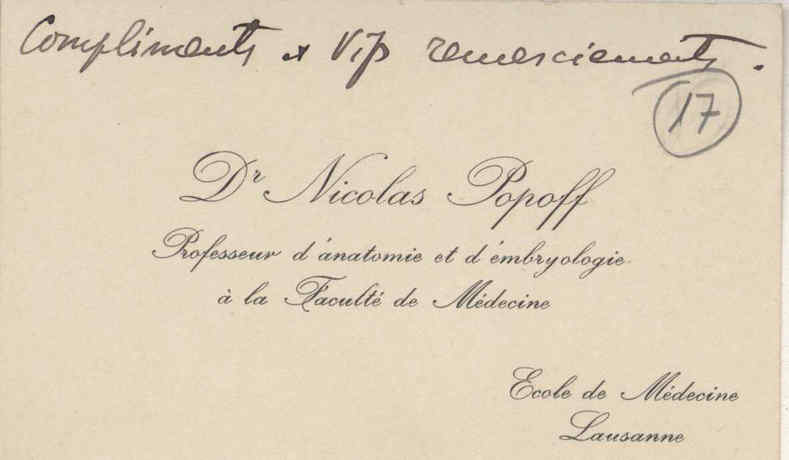 Compliments & vifs remerciements.
17
Dr Nicolas Popoff
Professeur d'anatomie et d'embryologie
à la Faculté de Médecine
Ecole de Médecine
Lausanne